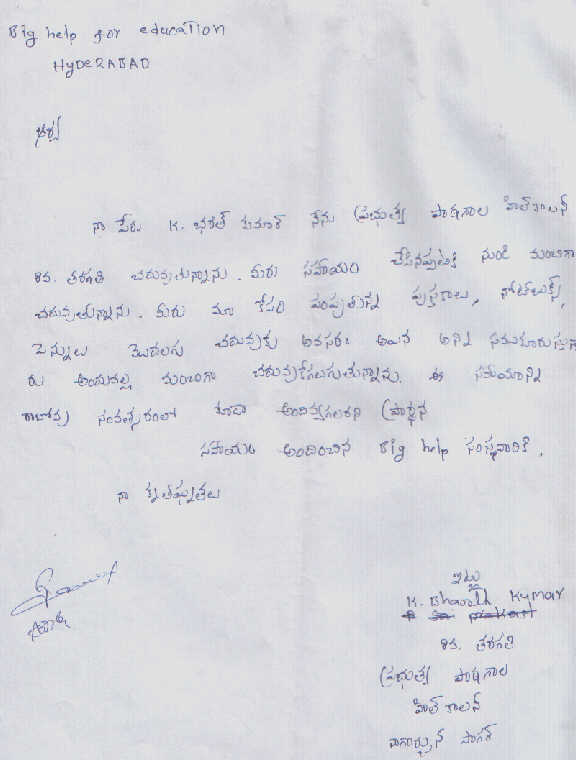 Big help for education
HyDeRABAD
నా పేరు K. భరత్ కుమార్ నేను ప్రభుత్వ పాఠశాల హిల్ కాలనీ
8వ. తరగతి చదువుతున్నాను. మీరు సహాయం చేసినప్పటికి నుండి మంచిగా
చదువుతున్నాను. మీరు మా కోసం పంపుతున్న పుస్తకాలు, నోట్ బుక్స్,
పెన్నులు మొదలగు చదువుకు అవసరం అయిన అన్ని సమకూరుస్తున్నా
రు అందువల్ల మంచిగా చదువుకోగలుగుతున్నాను. ఈ సహాయాన్ని
రాబోవు సంవత్సరంలో కూడా అందివ్వగలరని ప్రార్థన
సహాయం అందించిన Big help సంస్థవారికి,
నా కృతజ్ఞతలు
ఇట్లు
K. Bharath Kumar
8వ. తరగతి
ప్రభుత్వ పాఠశాల
హిల్ కాలనీ
నాగార్జున సాగర్